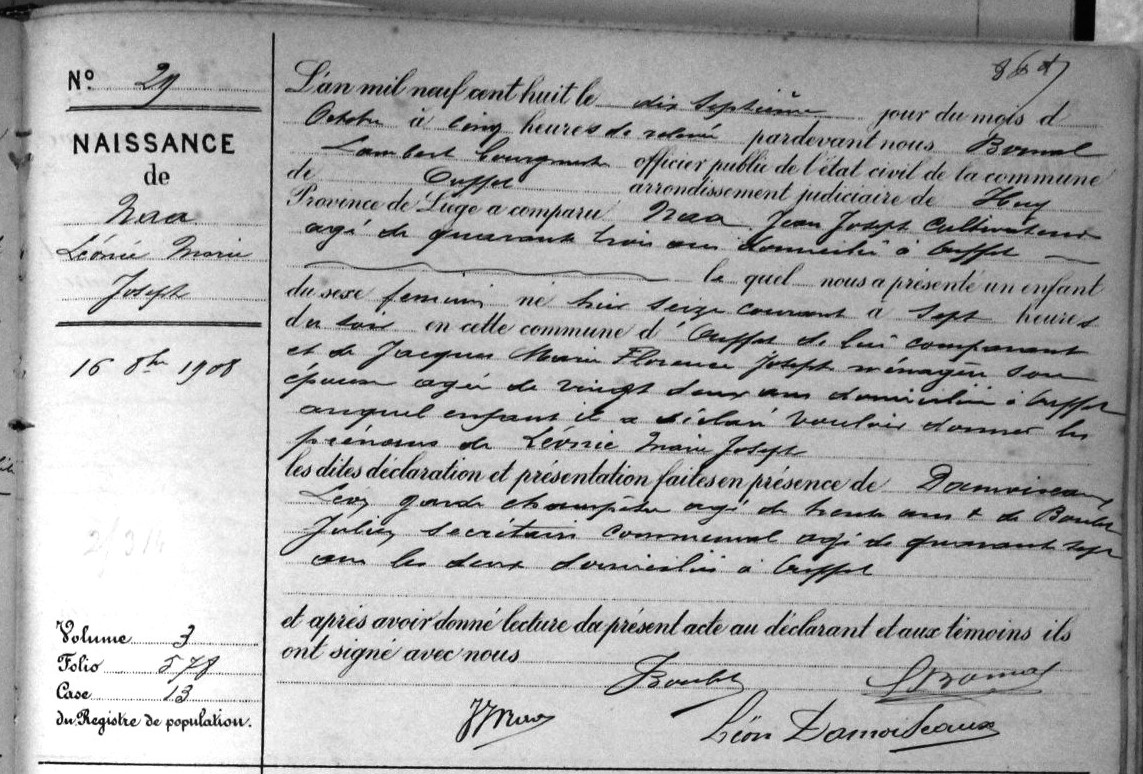 Nº 29
NAISSANCE
de
Naa
Léonie Marie
Joseph
16 8bre 1908
Volume 3
Folio 578
Case 13
du Registre de population.
L'an mil neuf cent huit le dix septième jour du mois d
Octobre à cinq heures de relevée pardevant nous Bomal
Lambert officier public de l'état civil de la commune
de Ouffet arrondissement judiciaire de Huy
Province de Liége a comparu Naa Jean Joseph Cultivateur
agé de quarante trois ans domicilié à Ouffet
le quel nous a présenté un enfant
du sexe feminin né hier seize courant à sept heures
du soir en cette commune d'Ouffet de lui comparant
et de Jacques Marie Florence Joseph ménagère son
épouse agée de vingt deux ans domiciliée à Ouffet
auquel enfant il a déclaré vouloir donner les
prénoms de Léonie Marie Joseph
les dites déclaration et présentation faites en présence de Damoiseaux
Léon garde champêtre agé de trente ans & de Boulet
Julien secrétaire communal agé de quarante sept
ans les deux domiciliés à Ouffet
et après avoir donné lecture du présent acte au déclarant et aux témoins ils
ont signé avec nous
JBoulet LBomal
JJNaa Léon Damoiseaux